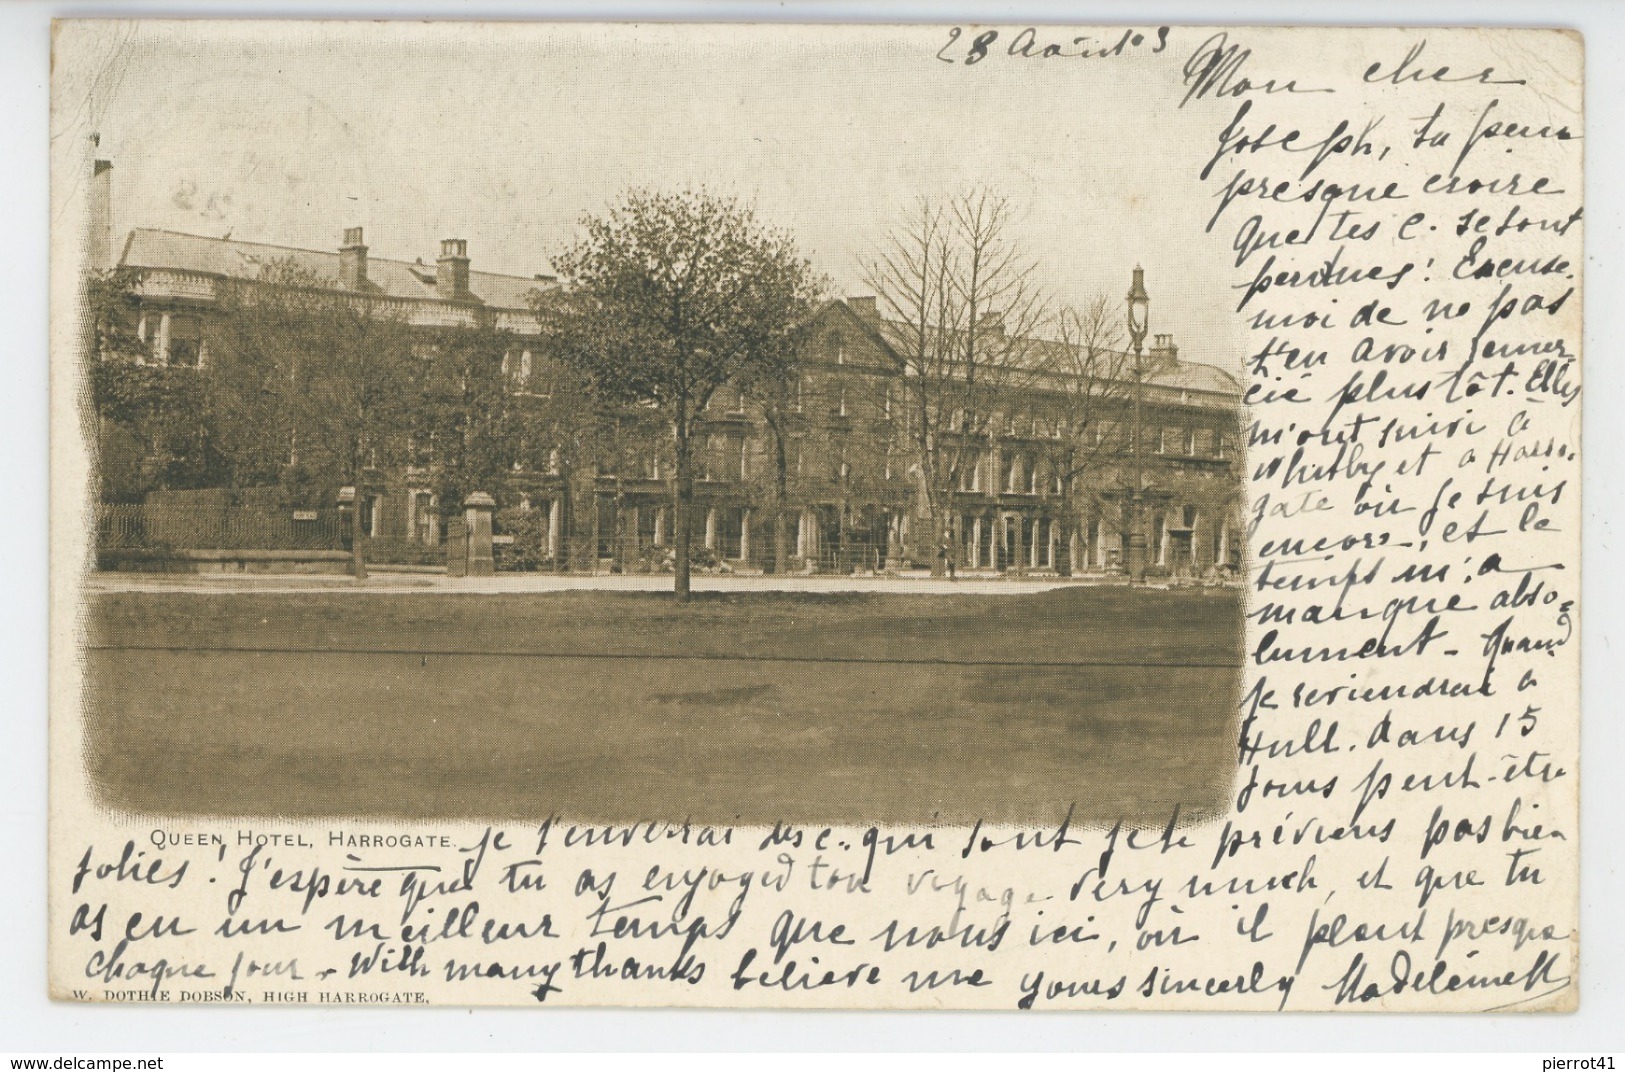 28 Août 03
Mon cher
Joseph, tu peux
presque croire
que tes c. se sont
perdues! Excuse-
moi de ne pas
t'en avoir remer-
cié plus tôt. Elles
m'ont suivi à
Whitby et à Harro-
gate où je suis
encore, et le
temps m'a
manqué abso-
lument - Quand
je reviendrai à
Hull. dans 15
jours peut-être
je t'enverrai des c. qui sont je te préviens pas bien
jolies! J'espère que tu as enjoyed ton voyage very much, et que tu
as eu un meilleur temps que nous ici, où il pleut presque
chaque jour - With many thanks believe me yours sincerely
QUEEN HOTEL, HARROGATE.
W. DOTHIE DOBSON, HIGH HARROGATE.
pierrot41
www.delcampe.net